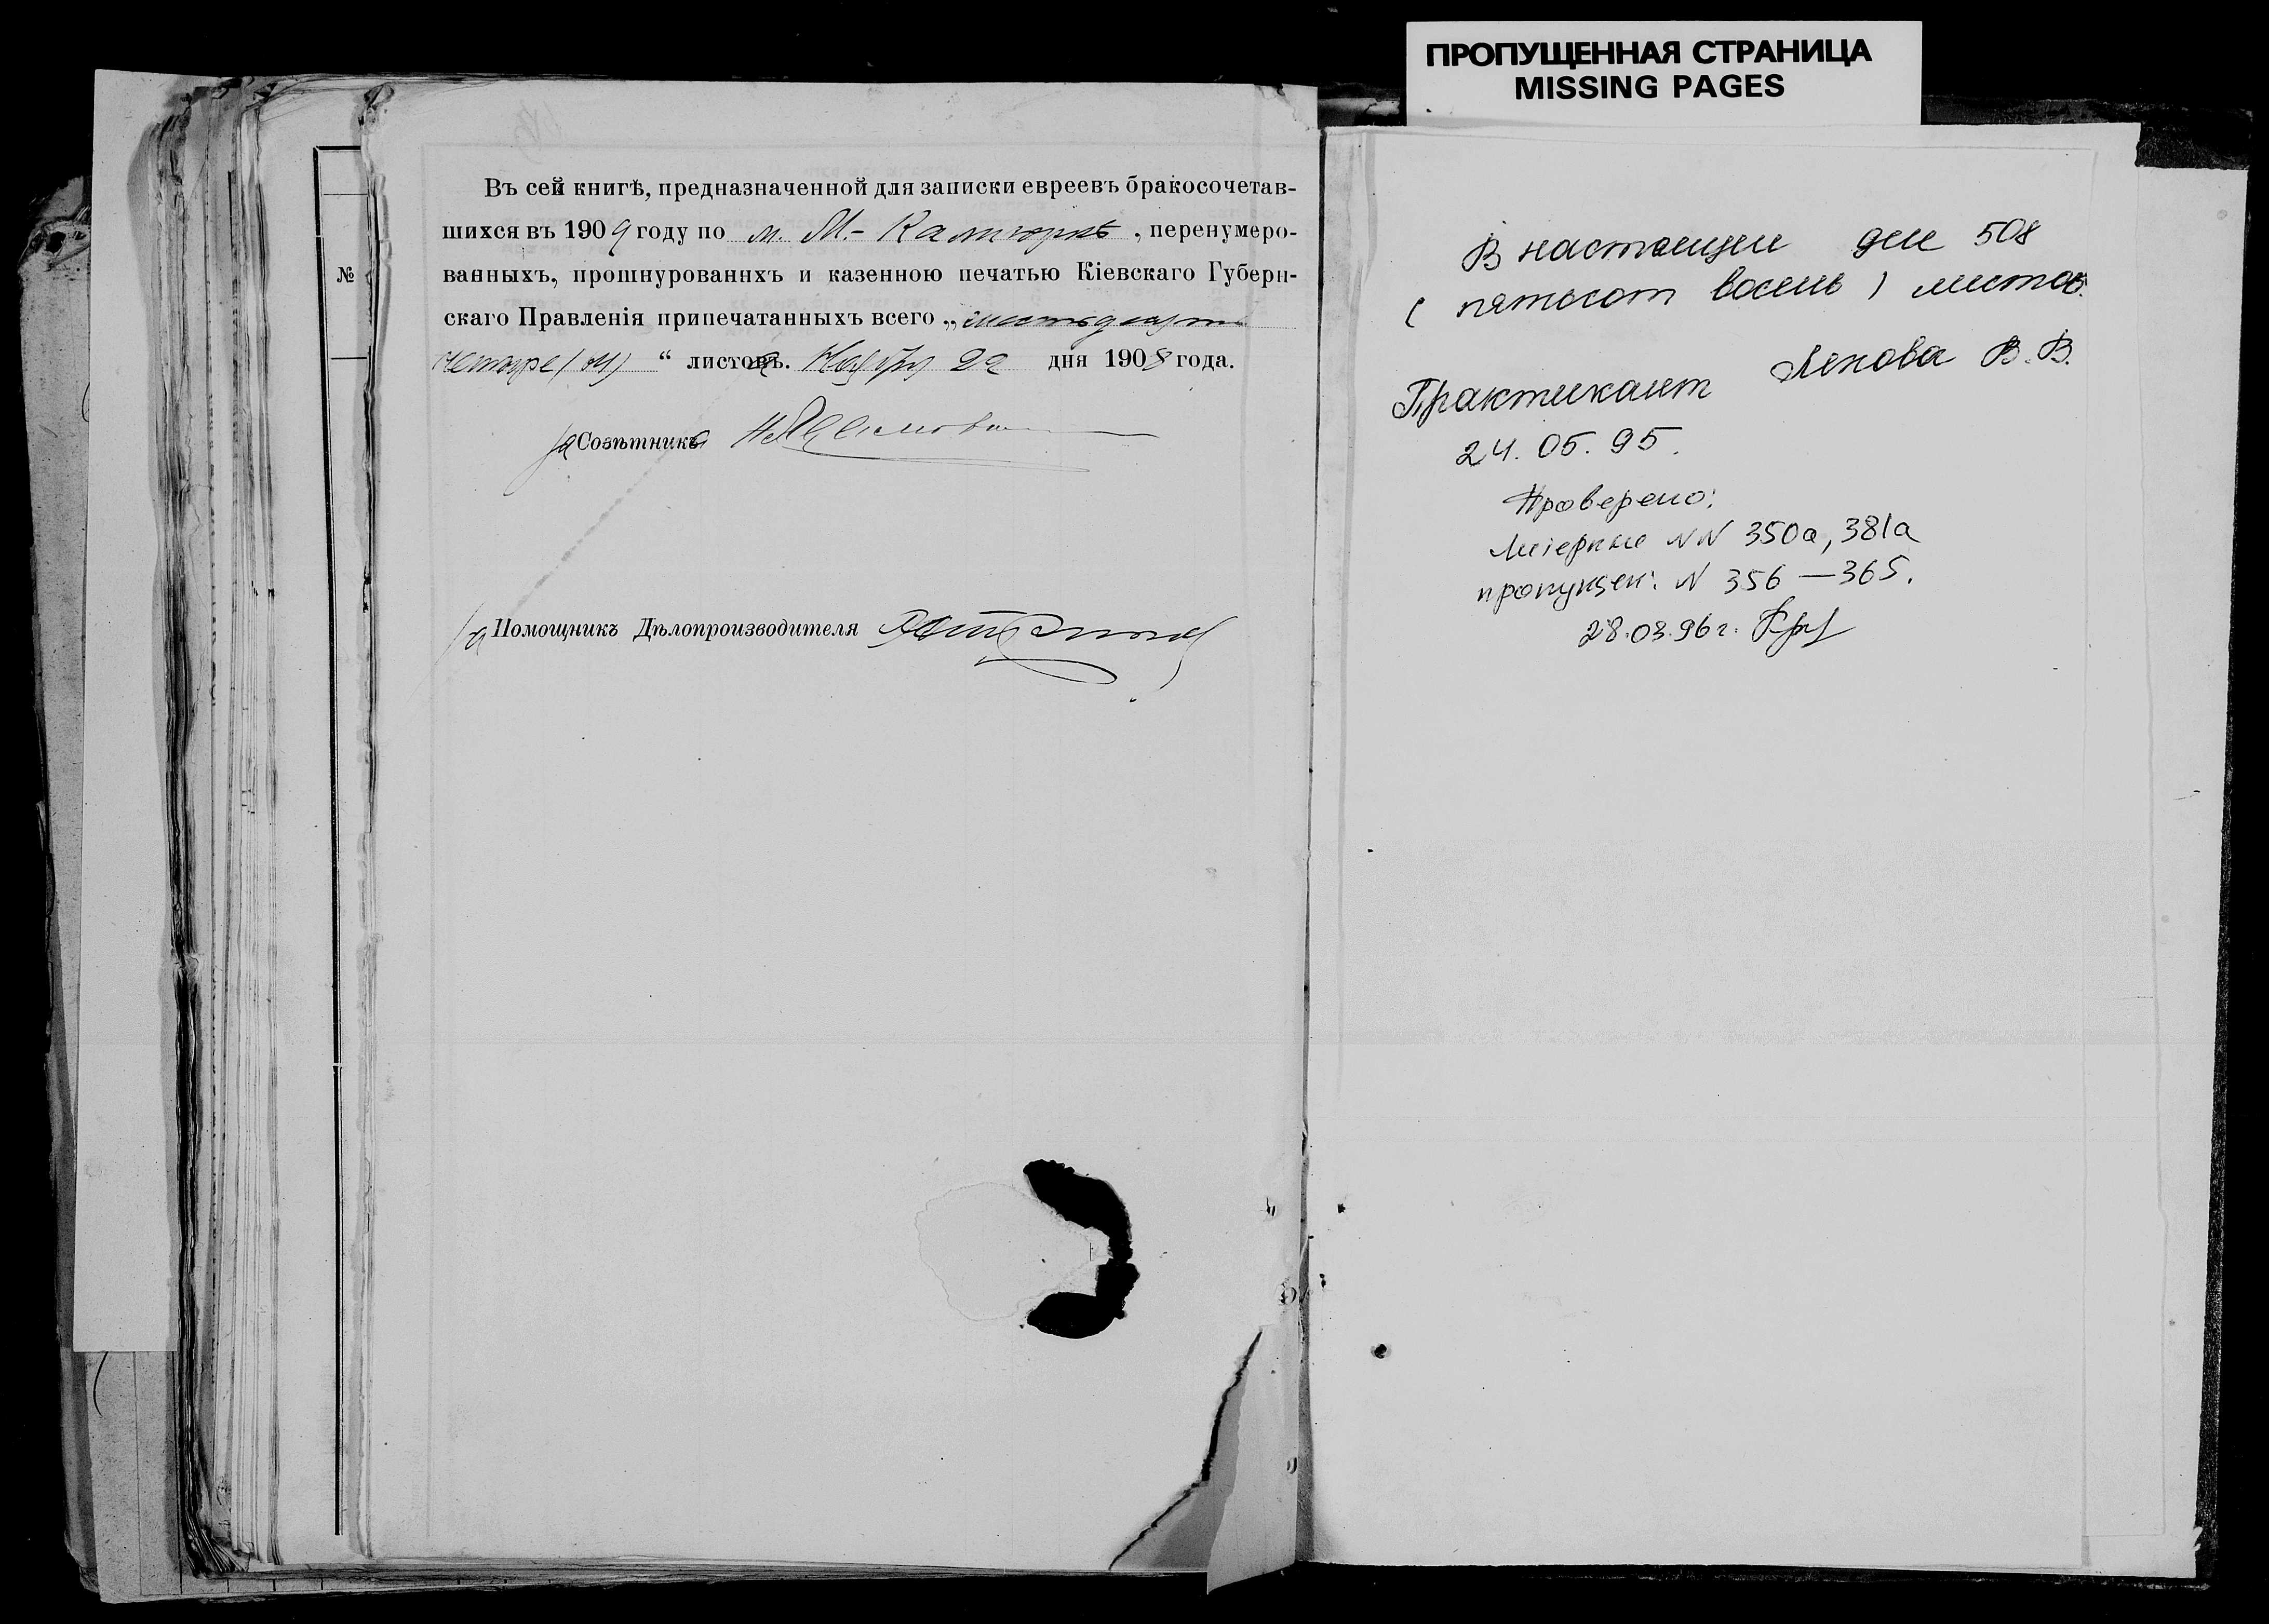 ПРОПУЩЕННАЯ СТРАНИЦА
MISSING PAGES
№
Въ сей книгѣ, предназначенной для записки евреевъ бракосочетав-
шихся въ 1909 году по м. М.- , перенумеро-
ванныхъ, прошнурованнхъ и казенною печатью Кіевскаго Губерн-
скаго Правленія припечатанныхъ всего „шестьдесятъ
четыре “ листовъ. Ноября 22 дня 1908 года.
за Совѣтника
за Помощникъ Дѣлопроизводителя
В настоящем деле 508
( пятьсот восемь ) листов.
Практикант В. В.
24. 05. 95.
Проверено:
Литерные NN 350а, 381а
пропущен: N 356 — 365.
28.03.96 г.